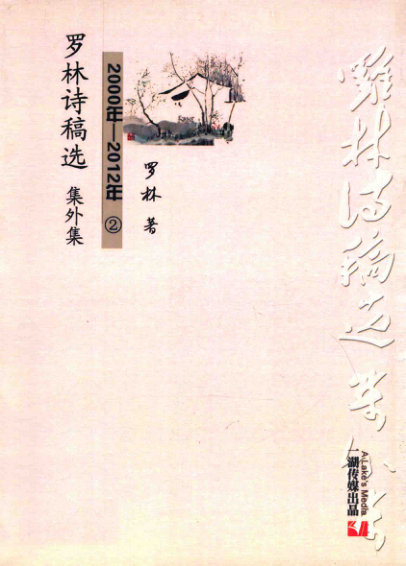 罗林诗稿选 集外集
2000年—2012年 ②
罗林 著
羅林诗稿选集外集
一湖传媒出品
A-Lake's Media